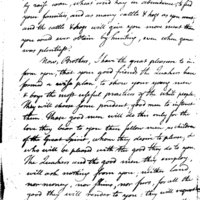 by raise corn, wheat and hay in abundance, & feed
your families, and as many cattle & hogs as you need
and the cattle & hogs will give you more meat than
you could ever obtain by hunting, even when game
was plentiful.
Now, Brothers, I have the great pleasure to in
form you, that your good friends the Quakers have
formed a wise plan to show your young men
& boys the most useful practices of the white people
They will choose some prudent, good men to instruct
them. These good men will do this only for the
love they bear to you their fellow men, & children
of the great spirit, whom they desire to please, &
who will be pleased with the good they do to you
The Quakers and the good men they employ,
will ask nothing from you, neither land
nor money, nor skins, nor furs, for all the
good they will render to you they will request